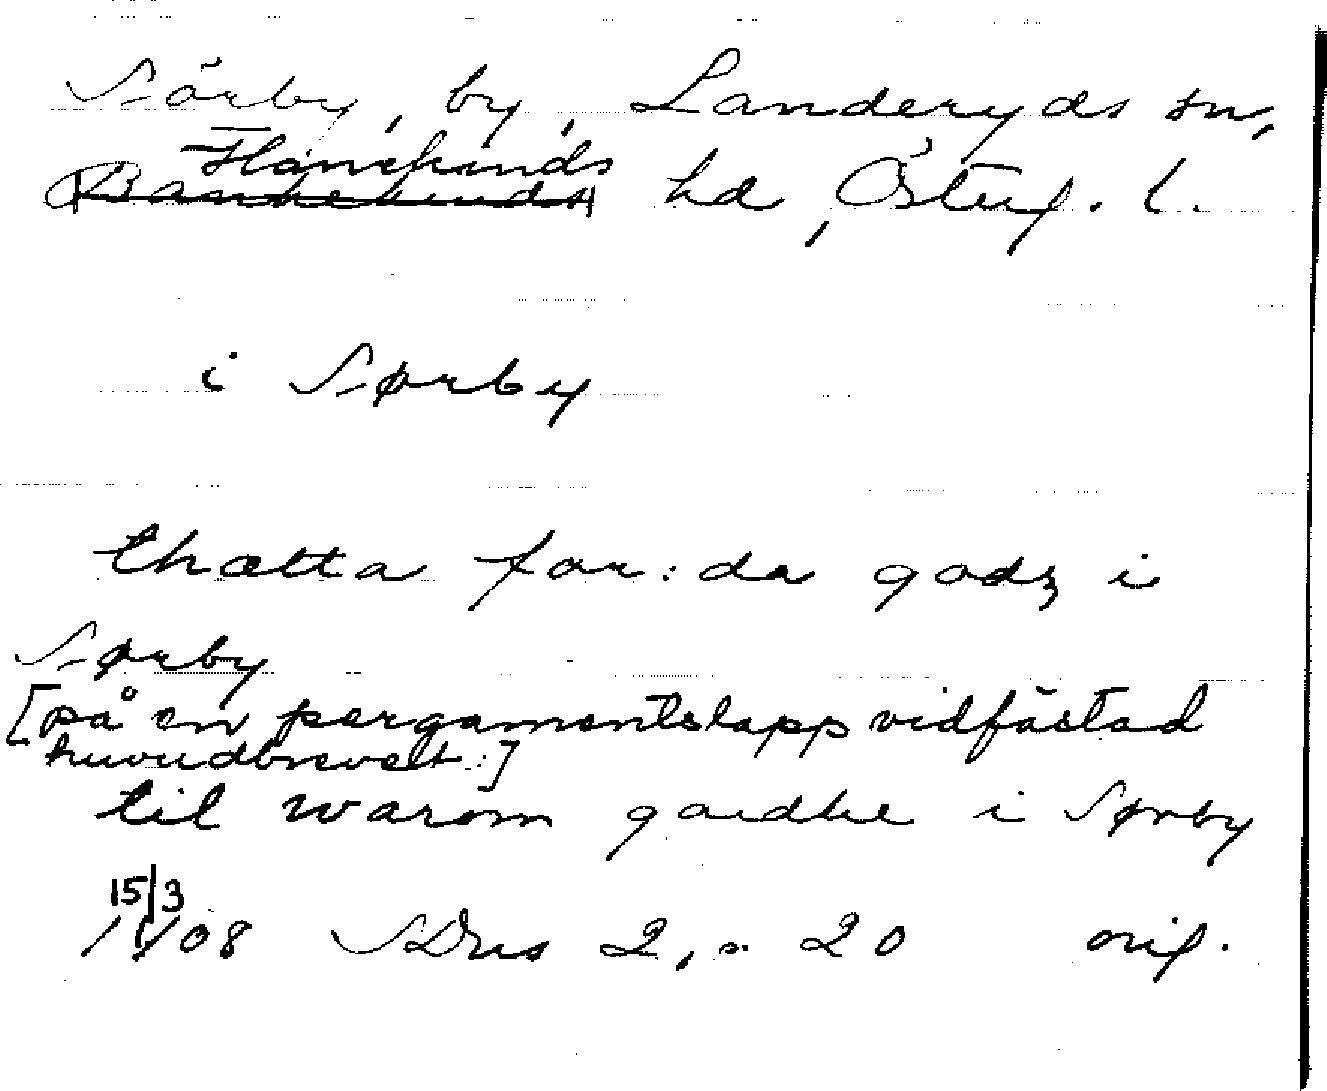 Sörby, by, Landeryds sn,
Hanekinds
Bankekinds hd, Österg. l.
i Sørby
thætta for:da godz i
Sørby
[på en pergamentslapp vidfästad
huvudbrevet:]
til warom gardhe i Sørby
15/3
1408 SDns 2, s. 20 orig.